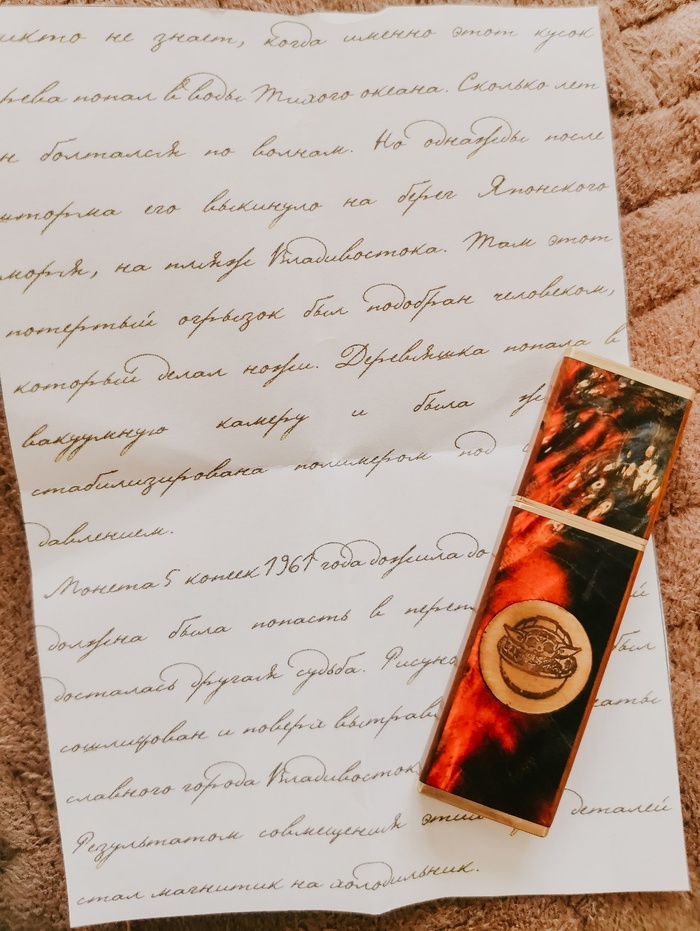 икто не знает, когда именно этот кусок
рева попал в воды Тихого океана. Сколько лет
н болтался по волнам. Но однажды после
шторма его выкинуло на берег Японского
моря, на пляж Владивостока. Там этот
потертый огрызок был подобран человеком,
который делал ножи. Деревяшка попала в
вакуумную камеру и была
стабилизирована полимером под
давлением.
Монета 5 копеек 1961 года дожила до
должна была попасть в
досталась другая судьба. был
сошлифован и поверх
славного города Владивосток
Результатом совмещения деталей
стал магнитик на холодильник.